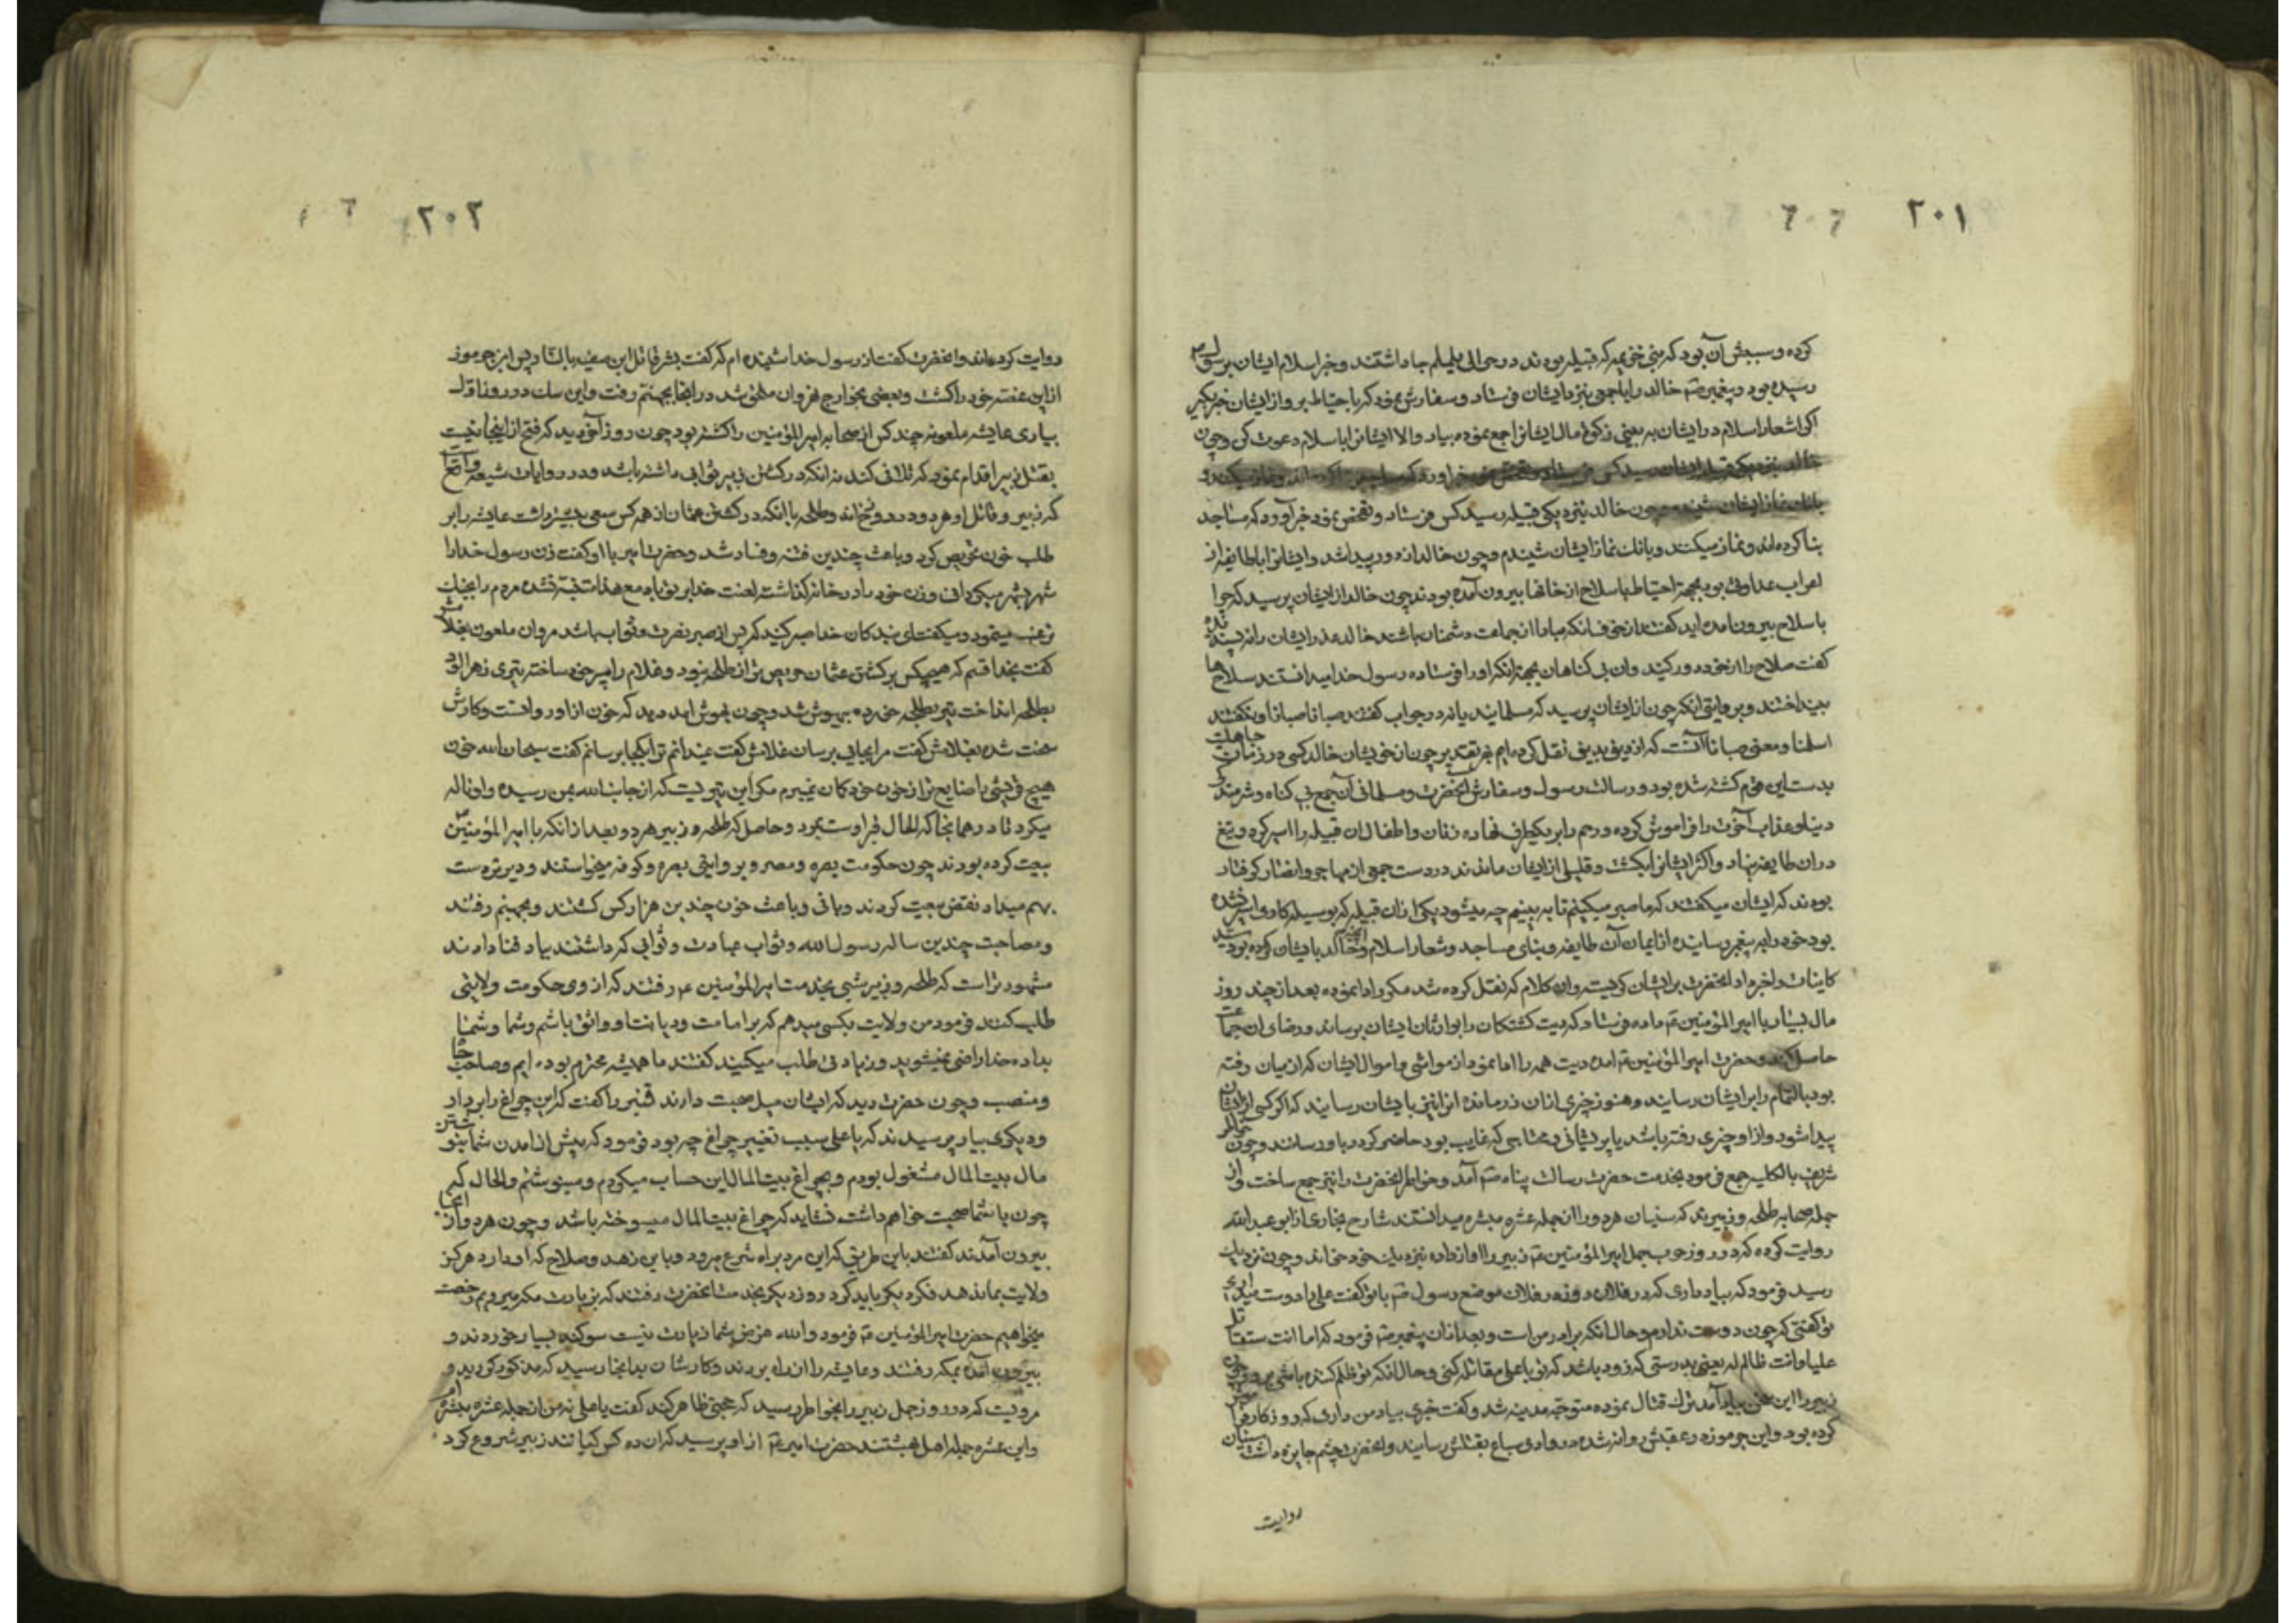 ۲۰۱
کرده و سببش آن بود که بنی خزیمه که قبیله بودند در حوالی یلملم جا داشتند و خبر اسلام ایشان برسول
رسیده بود و پیغمبر صَم خالد را با جمعی بنزد ایشان فرستاد و سفارش نمود که با حیاط برو از ایشان خبر بکیر
اکر اشعار اسلام در ایشان به بینی زکوة مال ایشانرا جمع نموده بیاد والا ایشانرا باسلام دعوت کن و چون
خالد بنزدیک قبیله ایشان رسید کس فرستاد
بانک نماز ایشان چون خالد بنزدیکی قبیله رسید کس فرستاد و تفحص نمود خبر آورد که مساجد
بنا کرده‌اند و نماز میکنند و بانک نماز ایشان شنیدم و چون خالد از دور پیدا شد و ایشانرا با طایفه از
اعراب عداوتی بود بجهة احتیاط با سلاح از خانها بیرون آمده بودند چون خالد از ایشان پرسید که چرا
با سلاح بیرون امده اید کفتند از خوف انکه مبادا انجماعت دشمنان باشند خالد عذر ایشان را نه پسندیده
کفت صلاح را از خود دور کنید و ان بی کناهان بجهة انکه او را فرستاده رسول خدا میدانستند سلاح ها
بینداختند و بروایتی انکه چون از ایشان پرسید که مسلمانید یا نه در جواب کفتند صبانا صبانا و نکفتند
اسلمنا و معنی صبانا آنست که از دینی بدینی نقل کرده ایم بهر تقدیر چون از خویشان خالد کسی در زمان جاهلیت
بدست این قوم کشته شده بود و رسالت رسول و سفارش انحضرت و مسلمانی آن جمع بی کناه و شرمندکی
دنیا و عذاب آخرت را فراموش کرده و رحم را بر یکطرف نهاده زنان و اطفال ان قبیله را اسیر کرد و تیغ
در ان طایفه نهاد و اکثر ایشانرا بکشت و قلیلی از ایشان ماندند در دست جمعی از مهاجر و انصار کرفتار
بودند که ایشان میکفتند که ما صبر میکینم تا به بینیم چه میشود یکی از ان قبیله که بوسیله کاری اسیر نشده
بود خود را به پیغمبر رسانیده از ایمان آن طایفه و بنای مساجد و شعار اسلام و انچه خالد بایشان کرده بود سید
کاینات را خبر داد انحضرت بر ایشان کریست و ان کلام که نقل کرده شد مکرر ادا نموده بعد از چند روز
مال بسیار با امیر المؤمنین عَم داده فرستاد که دیت کشتکان را بوارثان ایشان برساند و رضای ان جماعت
حاصل کند و حضرت امیر المؤمنین عَم امده دیت همه را ادا نمود از مواشی و اموال ایشان که از میان رفته
بود بالتمام را بر ایشان رسانید و هنوز چیزی از ان زر مانده انرا نیز بایشان رسانید که اکر کسی از ایشان
پیدا شود و از او چیزی رفته باشد یا پریشانی و محتاجی که غایب بود حاضر کردد باو رسانند و چون خاطر
شریف بالکلیه جمع فرمود بخدمت حضرت رسالت پناه صَم آمد و خواطر انحضرت را نیز جمع ساخت و از
جمله صحابه طلحه و زبیرند که سنیان هر دو را از جمله عشره مبشره میدانستند شارح بخاری از ابو عبد الله
روایت کرده که در روز حرب جمل امیر المؤمنین عَم زبیر را اواز داده نزدیک خود خواند و چون نزدیک
رسید فرمود که بیاد داری که در فلان روز در فلان موضع رسول صَم با تو کفت علی را دوست میداری
تو کفتی که چون دوست ندارم و حال انکه برادر من است و بعد از ان پیغمبر صَم فرمود که اما انت ستقاتل
علیا و انت ظالم له یعنی بدرستی که زود باشد که تو با علی مقاتله کنی و حال انکه تو ظلم کننده باشی برو و چون
زبیر را این سخن بیاد آمد ترک قتال نموده متوجه مدینه شد و کفت خبری بیاد من دادی که روزکار فراموش
کرده بود و ابن جرموز در عقبش روانه شده در وادی سباع بقتلش رسانید و انحضرت چنانچه سنیان
روایت
۲۰۲
روایت کرده‌اند و انحضرت کفت از رسول خدا شنیده ام که کفت بشر قاتل ابن صفیه بالنار پس ابن جرموز
از این غصه خود را کشت و بعضی بخوارج نهروان ملحق شد در انجا بجهنم رفت و این سک در روز ناقه
بیاری عایشه ملعونه چند کس از صحابه امیر المؤمنین را کشته بود چون روز آخر دید که فتح از اینجانبست
بقتل زبیر اقدام نمود که تلافی کند نه انکه در کشتن زبیر ثوابی داشته باشد و در روایات شیعه واقع
که زبیر و قاتل او هر دو در دوزخ‌اند و طلحه با انکه در کشتن عثمان از همه کس سعی بیشتر داشت عایشه را بر
طلب خون تحریص کرد و باعث چندین فتنه و فساد شد و حضرت امیر با او کفت زن رسول خدا را
شهر بشهر میکردانی و زن خود را در خانه کذاشته لعنت خدا بر تو باد مع هذا متنبه نشده مردم را بجنک
ترغیب مینمود و میکفت ای بندکان خدا صبر کنید که پس از صبر نصرت و ثواب باشد مروان ملعون بغلامش
کفت بخدا قسم که هیچکس بر کشتن عثمان حریص تر از طلحه نبود و غلام را سپر خود ساخته تیری زهرالود
بطلحه انداخت تیر بطلحه خورده بیهوش شد و چون بهوش امد دید که خون از او روانست و کارش
سخت شده بغلامش کفت مرا بجایی برسان غلامش کفت نمیدانم ترا بکجا برسانم کفت سبحان الله خون
هیچ قریشی را ضایع تر از خون خود کمان نمیبرم مکر این تیریست که از جانب الله بمن رسیده و او ناله
میکرد تا در همانجا که الحال قبر اوست بمرد و حاصل که طلحه و زبیر هر دو بعد از انکه با امیر المؤمنین عَم
بیعت کرده بودند چون حکومت بصره و مصر و بروایتی بصره و کوفه میخواستند و دیر تر دست
بهم میداد نقض بیعت کردند و بانی و باعث خون چندین هزار کس کشتند و بجهنم رفتند
و مصاحبت چندین ساله رسول الله و ثواب عبادت و ثوابی که داشتند بباد فنا دادند
مشهور تر است که طلحه و زبیر شبی بخدمت امیر المؤمنین ع رفتند که از وی حکومت ولایتی
طلب کنند فرمود من ولایت بکسی میدهم که بر امامت و دیانت او واثق باشم و شما و شما
بداده خدا راضی نمیشوید و زیادتی طلب میکنید کفتند ما همیشه محترم بوده ایم و صاحب جاه
و منصب و چون حضرت دید که ایشان میل صحبت دارند قنبر را کفت که این چراغ را بردار
و دیکری بیار پرسیدند که یا علی سبب تغییر چراغ چه بود فرمود که پیش از امدن شما بنوشتن
مال بیت المال مشغول بودم و بچراغ بیت المال این حساب میکردم و مینوشتم والحال که
چون با شما صحبت خواهم داشت نشاید که چراغ بیت المال میسوخته باشد و چون هر دو از انجا
بیرون آمدند کفتند باین طریقی که این مرد براه شرع میرود و باین زهد و صلاح که او دارد هرکز
ولایت بما ندهد فکر دیکر باید کرد روز دیکر بخدمت انحضرت رفتند که بزیارت مکه میرویم و رخصت
میخواهیم حضرت امیر المؤمنین عَم فرمود والله غرض شما زیارت نیست سوکند بسیار خوردند و
بیرون آمده بمکه رفتند و عایشه را از راه بردند و کارشان بدانجا رسید که مذکور کردید و
مرویست که در روز جمل زبیر را بخواطر رسید که حجتی ظاهر کند کفت یا علی نه من از جمله عشره مبشره ام
و این عشره جمله اهل بهشتند حضرت امیر عَم از او پرسید که ان ده کس کیانند زبیر شروع کرد